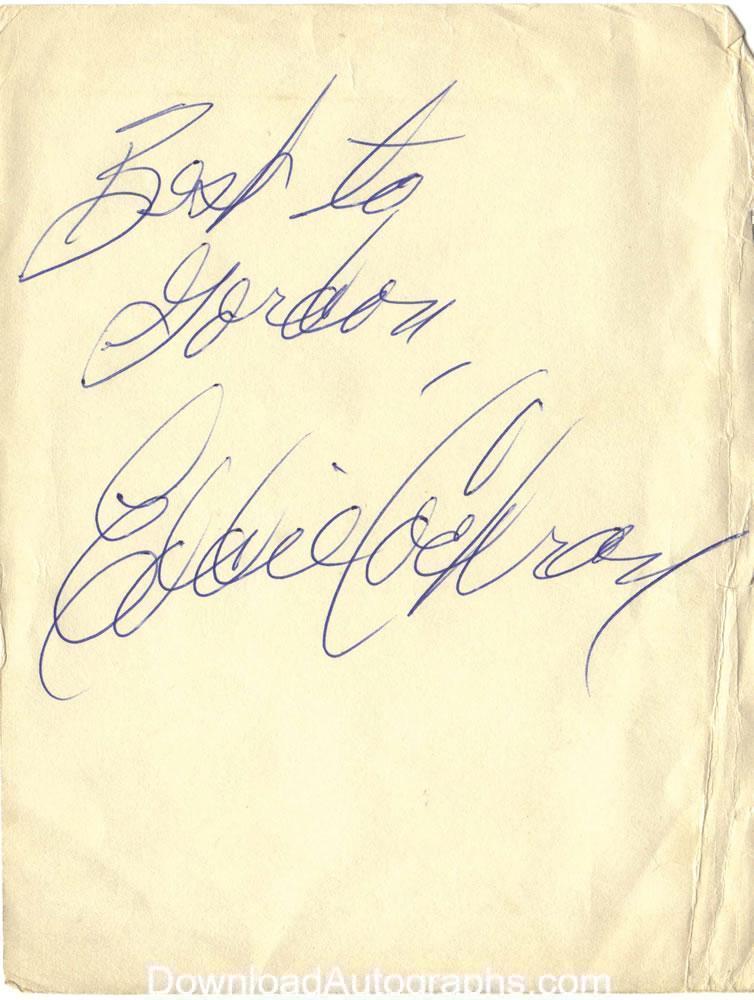 Best to
Gordon,
Eddie Cochran
DownloadAutographs.com